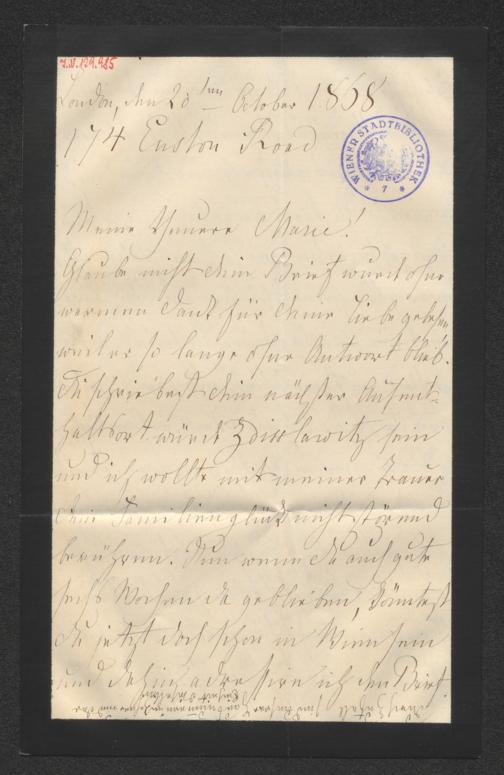 I.N. 129.985
London, den 20ten October 1868
174 Euston Road
WIENER STADTBIBLIOTHEK
* 7 *
Meine theuere Marie!
Glaube nicht dein Brief wurde ohne
warmen Dank für deine Liebe gelesen
weil er so lange ohne Antwort blieb.
Du schriebest dein nächster Aufent-
haltsort würde Zdisslawitz sein
und ich wollte mit meiner Trauer
dein Familienglück nicht störend
berühren. Nun wenn du auch gute
sechs Wochen da geblieben, könntest
du jetzt doch schon in Wien sein
und dahin adressire ich den Brief.